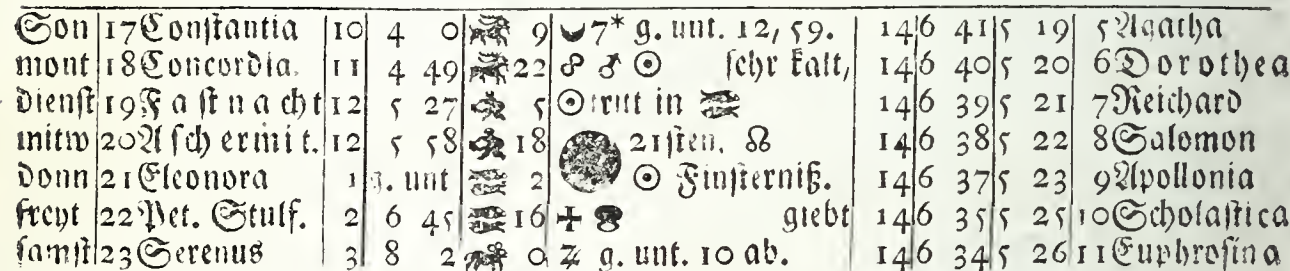 Son 17 Conſtantia 10 4 0 9 7* g. unt. 12, 59. 14 6 41 5 19 5 Agatha
mont 18 Concordia. 11 4 49 22 ☍ ♂ ☉ ſehr kalt, 14 6 40 5 20 6 Dorothea
dienſt 19 Faſtnacht 12 5 27 5 ☉ tritt in ♓ 14 6 39 5 21 7 Reichard
mitw 20 Aſchermit. 12 5 58 18 21ſten. ☊ 14 6 38 5 22 8 Salomon
donn 21 Eleonora 1 g. unt ♓ 2 ☉ Finſterniß. 14 6 37 5 23 9 Apollonia
freyt 22 Pet. Stulf. 2 6 45 ♓ 16 giebt 14 6 35 5 25 10 Scholaſtica
ſamſt 23 Serenus 3 8 2 0 ♃ g. unt. 10 ab. 14 6 34 5 26 11 Euphroſina